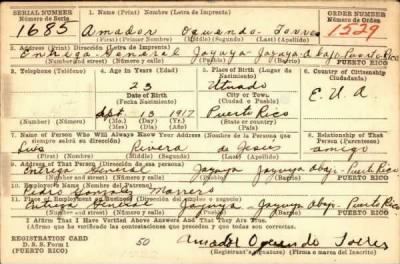 SERIAL NUMBER
Número de Serie
1685
1. Name (Print) Nombre (Letra de Imprenta)
Amador Oquendo Torres
(First) (Primer Nombre) (Middle) (Segundo) (Last) (Apellido)
ORDER NUMBER
Número de Orden
1529
2. Address (Print) Dirección (Letra de Imprenta)
Entrega General Jayuya - Jayuya Abajo - Puerto Rico
(Number and street) (Número y calle) (Town) (Pueblo) (Barrio) PUERTO RICO
3. Telephone (Teléfono)
4. Age in Years (Edad)
23
Date of Birth
(Fecha Nacimiento)
Sept. 13 1917
(Mo.) (Mes) (Day) (Día) (Yr.) (Año)
5. Place of Birth (Lugar de Nacimiento)
Utuado
City or Town
(Ciudad o Pueblo)
Puerto Rico
(State or country)
6. Country of Citizenship
(Ciudadanía)
E. U. A
7. Name of Person Who Will Always Know Your Address (Nombre de la Persona que siempre sabrá su dirección)
Luis Rivera de Jesús
(First) (Nombre) (Middle) (Segundo) (Last) (Apellido)
8. Relationship of That Person (Parentesco)
amigo
9. Address of That Person (Dirección de esa persona)
Entrega General Jayuya Jayuya abajo - Puerto Rico
(Number and street) (Número y calle) (Town) (Pueblo) (Barrio) PUERTO RICO
10. Employer's Name (Nombre del Patrono)
Pedro Marrero
11. Place of Employment or Business (Dirección del empleo o negocio)
Entrega General Jayuya - Jayuya abajo - Puerto Rico
(Number and street) (Número y calle) (Town) (Pueblo) (Barrio) PUERTO RICO
I Affirm That I Have Verified Above Answers And That They Are True.
(Afirmo que he verificado las contestaciones que preceden y que todas son ciertas.)
REGISTRATION CARD
D. S. S. Form 1
(Patrono)
50
Amador Oquendo Torres
(Registrant's signature) (Firma o marca del inscrito)